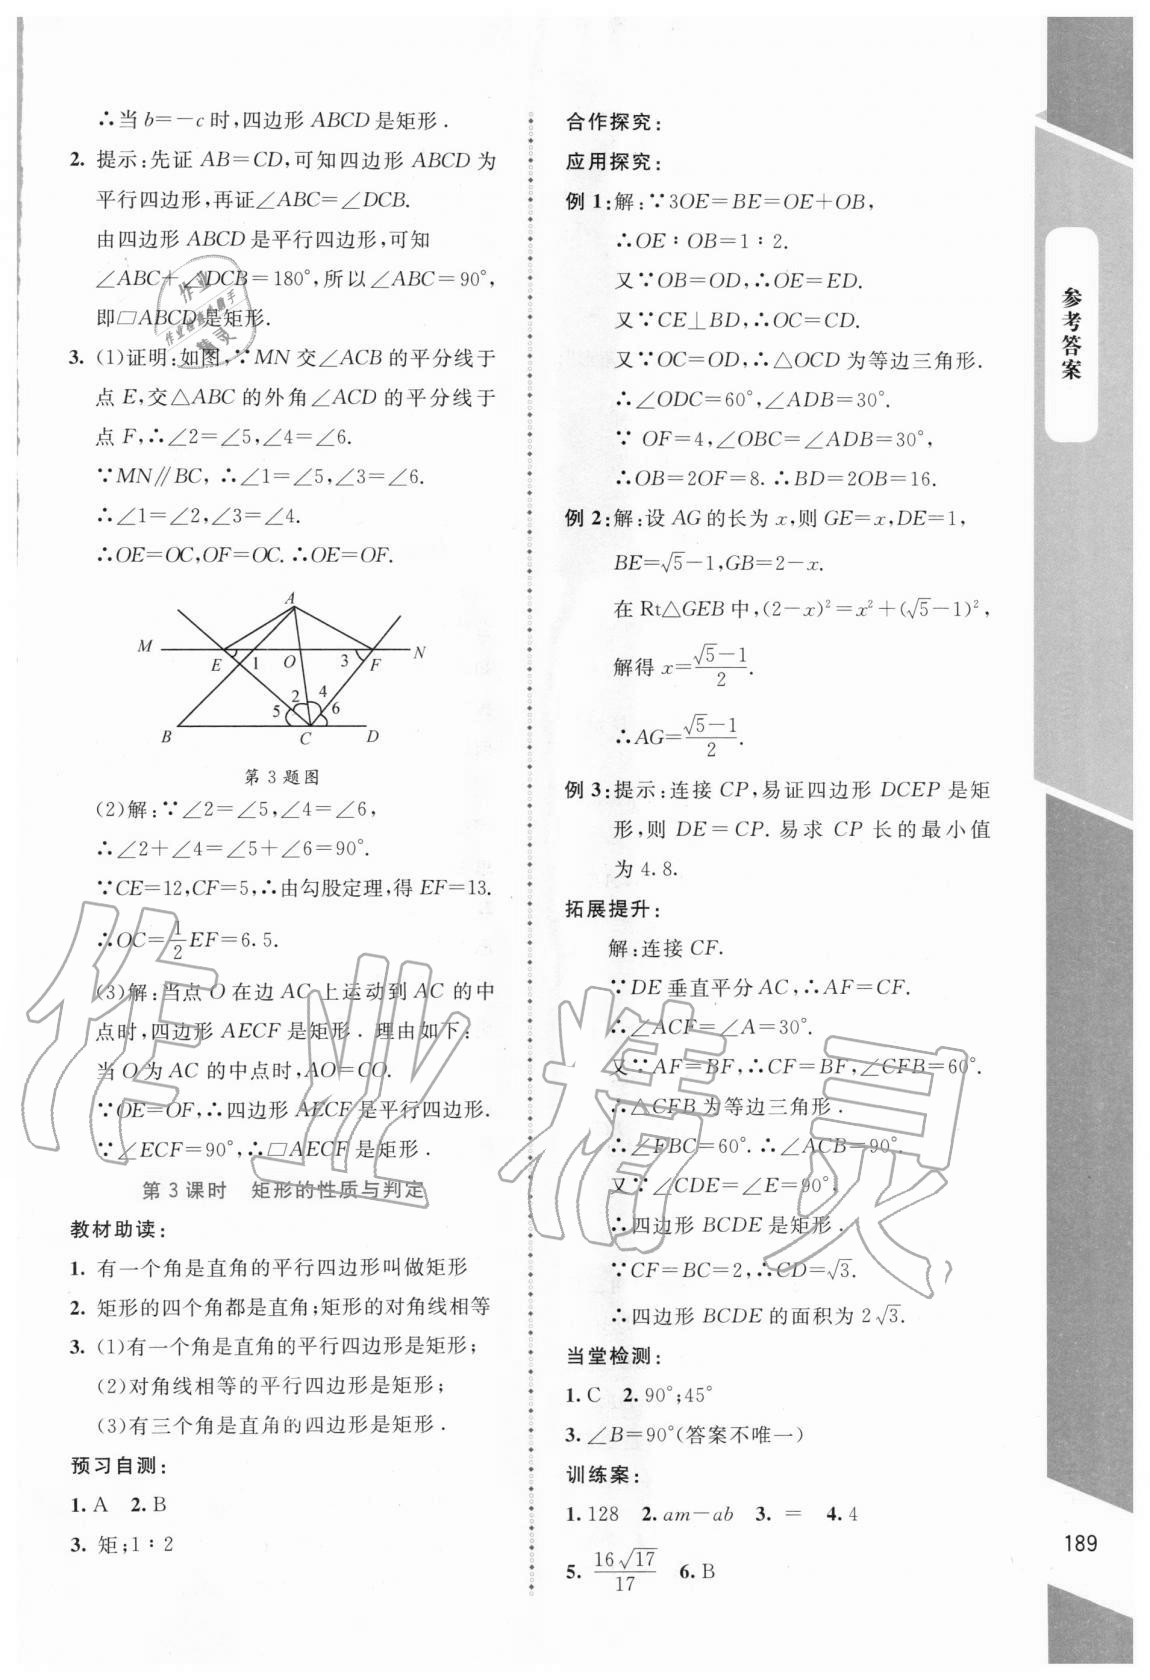 ∴当 b=-c 时,四边形 ABCD 是矩形.
2. 提示:先证 AB=CD,可知四边形 ABCD 为
平行四边形,再证∠ABC=∠DCB.
由四边形 ABCD 是平行四边形,可知
∠ABC+∠DCB=180°,所以∠ABC=90°,
即□ABCD 是矩形.
3. (1)证明:如图,∵MN 交∠ACB 的平分线于
点 E,交△ABC 的外角∠ACD 的平分线于
点 F,∴∠2=∠5,∠4=∠6.
∵MN∥BC, ∴∠1=∠5,∠3=∠6.
∴∠1=∠2,∠3=∠4.
∴OE=OC,OF=OC.∴OE=OF.
A
M E 1 O 3 F N
5 2 4 6
B C D
第 3 题图
(2)解:∵∠2=∠5,∠4=∠6,
∴∠2+∠4=∠5+∠6=90°.
∵CE=12,CF=5,∴由勾股定理,得 EF=13.
∴OC=1/2 EF=6.5.
(3)解:当点 O 在边 AC 上运动到 AC 的中
点时,四边形 AECF 是矩形. 理由如下:
当 O 为 AC 的中点时,AO=CO.
∵OE=OF,∴四边形 AECF 是平行四边形.
∵∠ECF=90°,∴□AECF 是矩形.
第 3 课时 矩形的性质与判定
教材助读:
1. 有一个角是直角的平行四边形叫做矩形
2. 矩形的四个角都是直角;矩形的对角线相等
3. (1)有一个角是直角的平行四边形是矩形;
(2)对角线相等的平行四边形是矩形;
(3)有三个角是直角的四边形是矩形.
预习自测:
1. A 2. B
3. 矩;1∶2
合作探究:
应用探究:
例 1:解:∵3OE=BE=OE+OB,
∴OE∶OB=1∶2.
又∵OB=OD,∴OE=ED.
又∵CE⊥BD,∴OC=CD.
又∵OC=OD,∴△OCD 为等边三角形.
∴∠ODC=60°,∠ADB=30°.
∵ OF=4,∠OBC=∠ADB=30°,
∴OB=2OF=8.∴BD=2OB=16.
例 2:解:设 AG 的长为 x,则 GE=x,DE=1,
BE=√5-1,GB=2-x.
在 Rt△GEB 中,(2-x)²=x²+(√5-1)²,
解得 x=(√5-1)/2.
∴AG=(√5-1)/2.
例 3:提示:连接 CP,易证四边形 DCEP 是矩
形,则 DE=CP. 易求 CP 长的最小值
为 4.8.
拓展提升:
解:连接 CF.
∵DE 垂直平分 AC,∴AF=CF.
∴∠ACF=∠A=30°.
又∵AF=BF,∴CF=BF,∠CFB=60°.
∴△CFB 为等边三角形.
∴∠FBC=60°.∴∠ACB=90°.
又∵∠CDE=∠E=90°,
∴四边形 BCDE 是矩形.
∵CF=BC=2,∴CD=√3.
∴四边形 BCDE 的面积为 2√3.
当堂检测:
1. C 2. 90°;45°
3. ∠B=90°(答案不唯一)
训练案:
1. 128 2. am-ab 3. = 4. 4
5. 16√17/17 6. B
参考答案
189
作业精灵